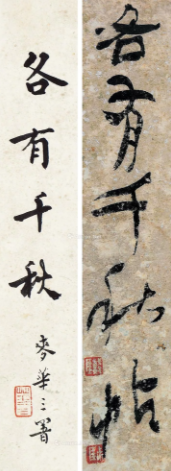 各有千秋帖
各有千秋
麥華三署